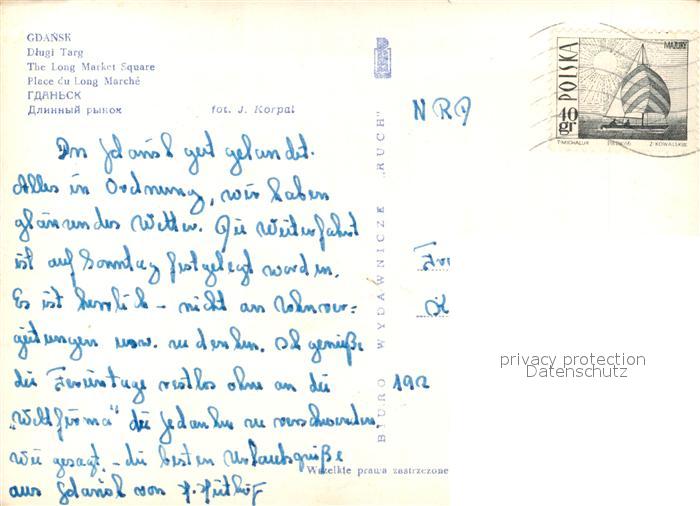 GDAŃSK
Długi Targ
The Long Market Square
Place du Long Marché
ГДАНЬСК
Длинный рынок
fot. J. Korpal
In Gdańsk gut gelandet.
Alles in Ordnung, wir haben
glänzendes Wetter. Die Weiterfahrt
ist auf Sonntag festgelegt worden.
Es ist herrlich - nicht an Lohnver-
gütungen usw. zu denken. Ich genieße
die Ferientage restlos ohne an die
„Weltfirma" die Gedanken zu verschwenden,
wie gesagt - die besten Urlaubsgrüße
aus Gdańsk von
BIURO WYDAWNICZE „RUCH"
NRD
192
Wszelkie prawa zastrzeżone
POLSKA
MAZURY
40 gr
T.MICHALUK
Z.KOWALSKI
privacy protection
Datenschutz